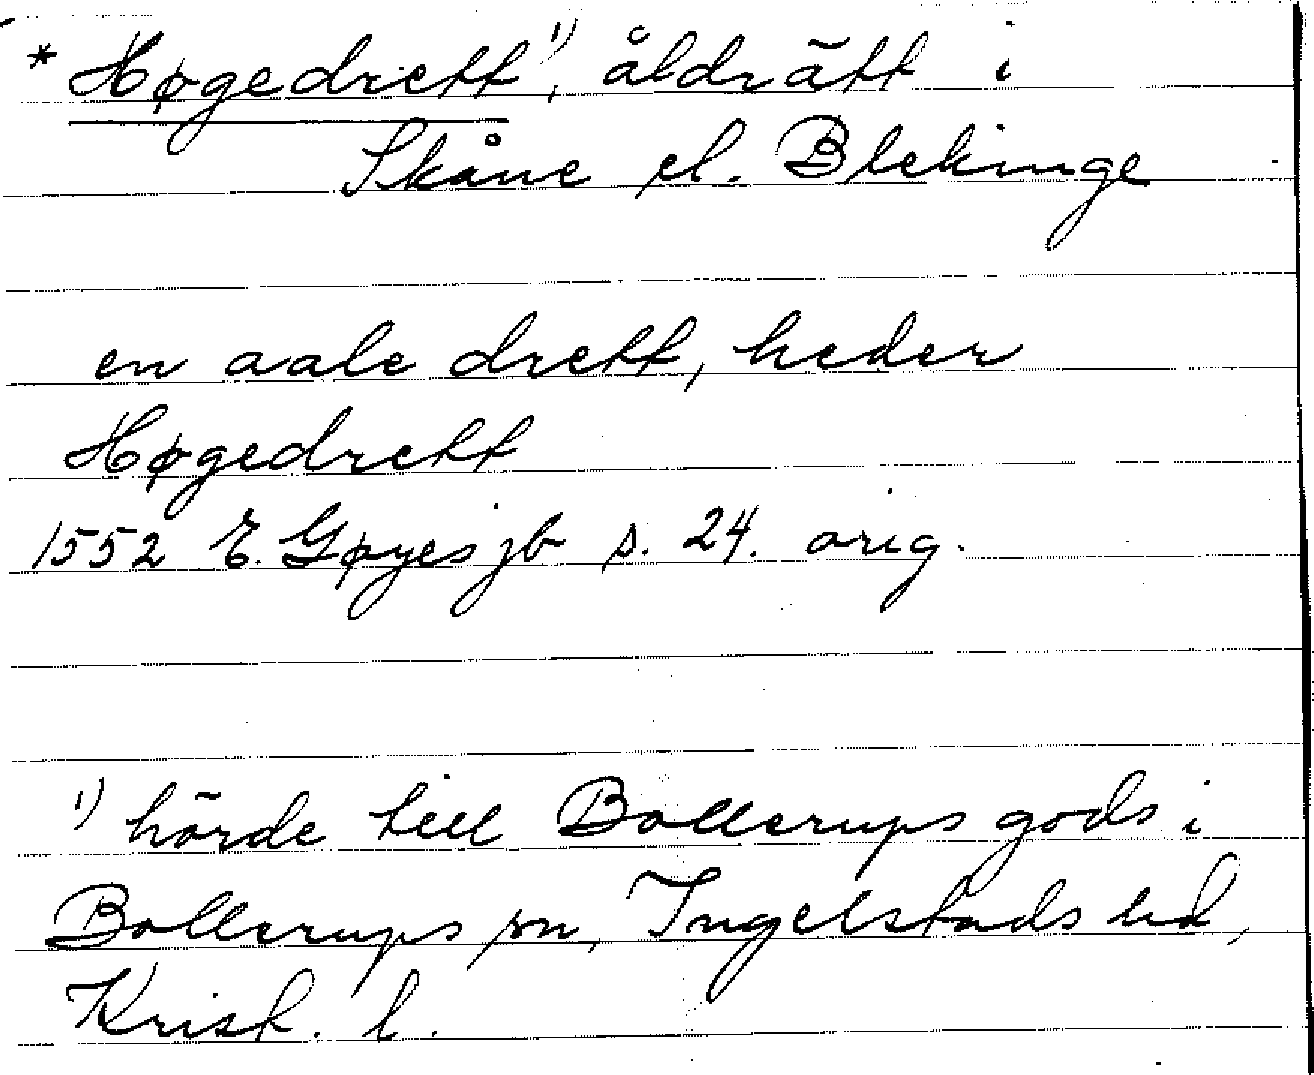 * Høgedrett,¹⁾ åldrätt i
Skåne el. Blekinge
en aale drett, heder
Høgedrett
1552 E. Gøyes jb s. 24. orig.
¹⁾ hörde till Bollerups gods i
Bollerups sn, Ingelstads hd,
Krist. l.